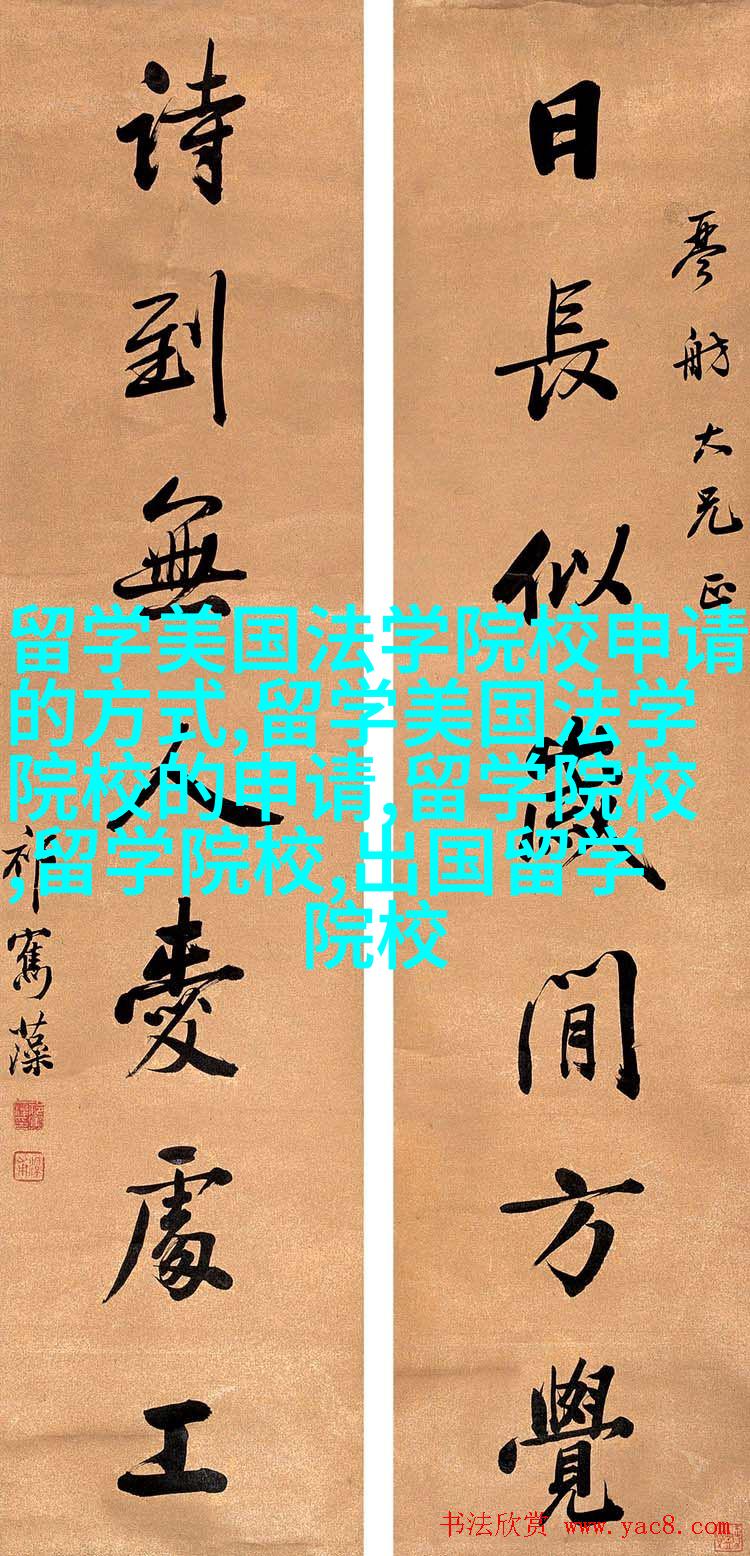 琴舫大兄正
日長似歲閒方覺
詩到無人愛處工
祁寯藻
留学美国法学院校申请
的方式,留学美国法学
院校的申请,留学院校
,留学院校,出国留学
院校
书法欣赏 www.yac8.com